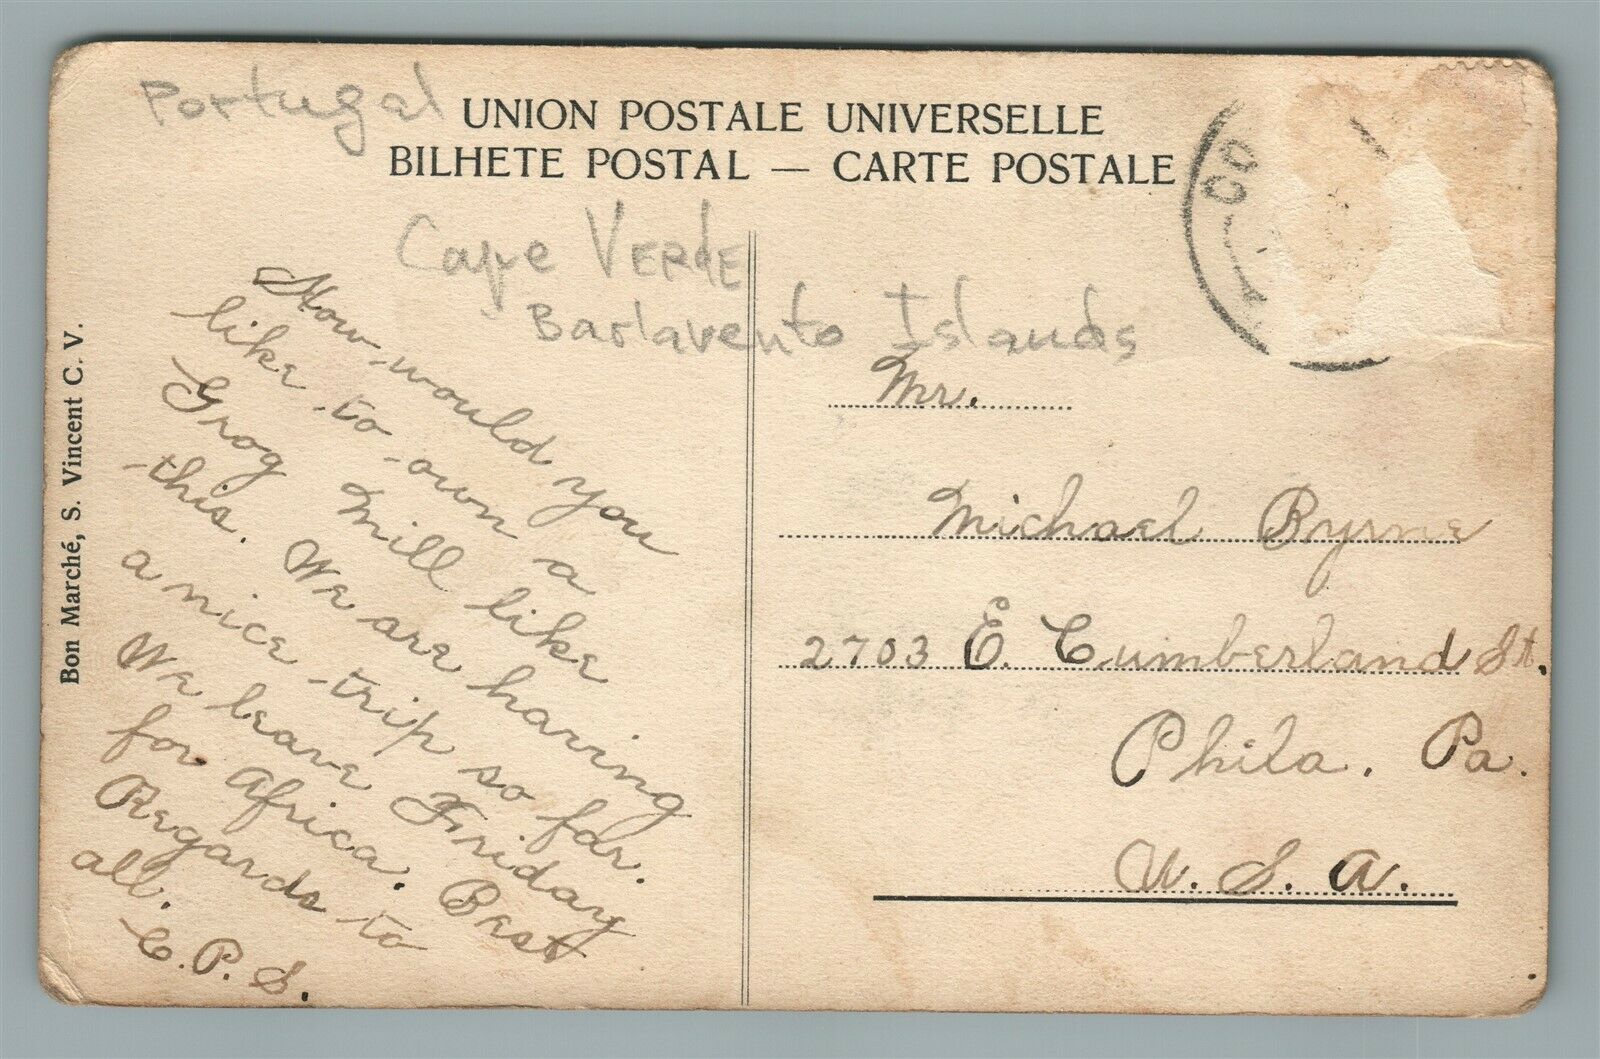 Portugal
UNION POSTALE UNIVERSELLE
BILHETE POSTAL — CARTE POSTALE
Cape VERdE
Barlavento Islands
Bon Marché, S. Vincent C. V.
How would you
like to own a
Grog Mill like
this. We are having
a nice trip so far.
We leave Friday
for Africa. Best
Regards to
all.
C. P. S.
Mr.
Michael Byrne
2703 E. Cumberland St.
Phila. Pa.
U. S. A.